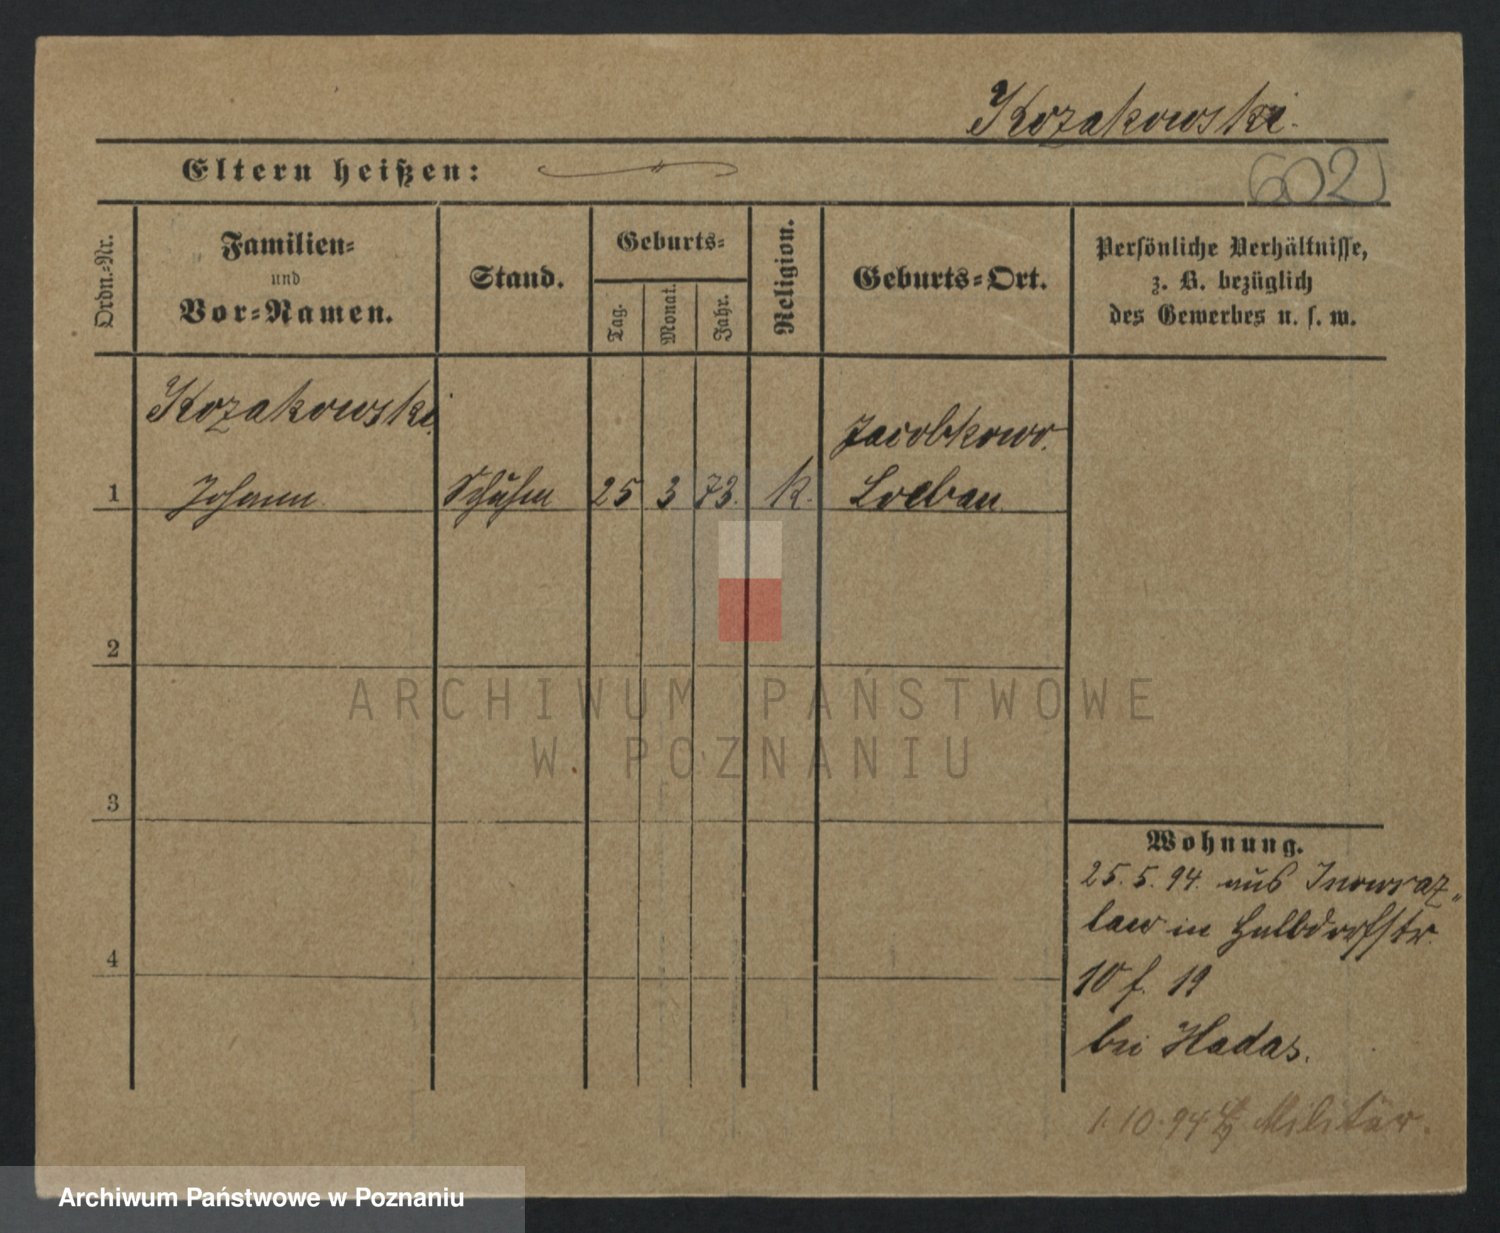 Kozakowski.
Eltern heißen:
602
Ordn.=Nr.
Familien=
und
Vor=Namen.
Stand.
Geburts=
Tag.
Monat.
Jahr.
Religion.
Geburts=Ort.
Persönliche Verhältnisse,
z. B. bezüglich
des Gewerbes u. s. w.
Kozakowski
Jacobkowo.
1 Johann Schuhm 25 3 73. k. Loebau
2
ARCHIWUM PAŃSTWOWE
W POZNANIU
3
Wohnung.
25. 5. 94. aus Inowraz„
law in Halbdorfstr.
4
10 f. 19
bei Hadas.
1. 10. 94 Militär.
Archiwum Państwowe w Poznaniu